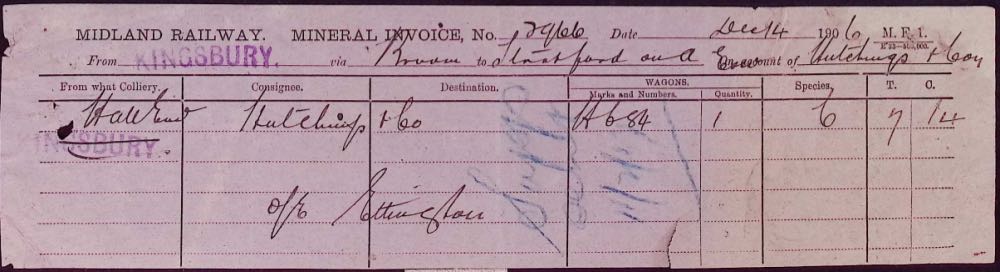 MIDLAND RAILWAY. MINERAL INVOICE, No. 2966 Date Dec 14 1906 M. F. 1.
From KINGSBURY. via Broom to Stratford on A On account of Hutchings & Coy
From what Colliery. Consignee. Destination. WAGONS. Marks and Numbers. Quantity. Species. T. C.
Hall End Hutchings & Co H 684 1 C 7 14
KINGSBURY.
o/c Ettington